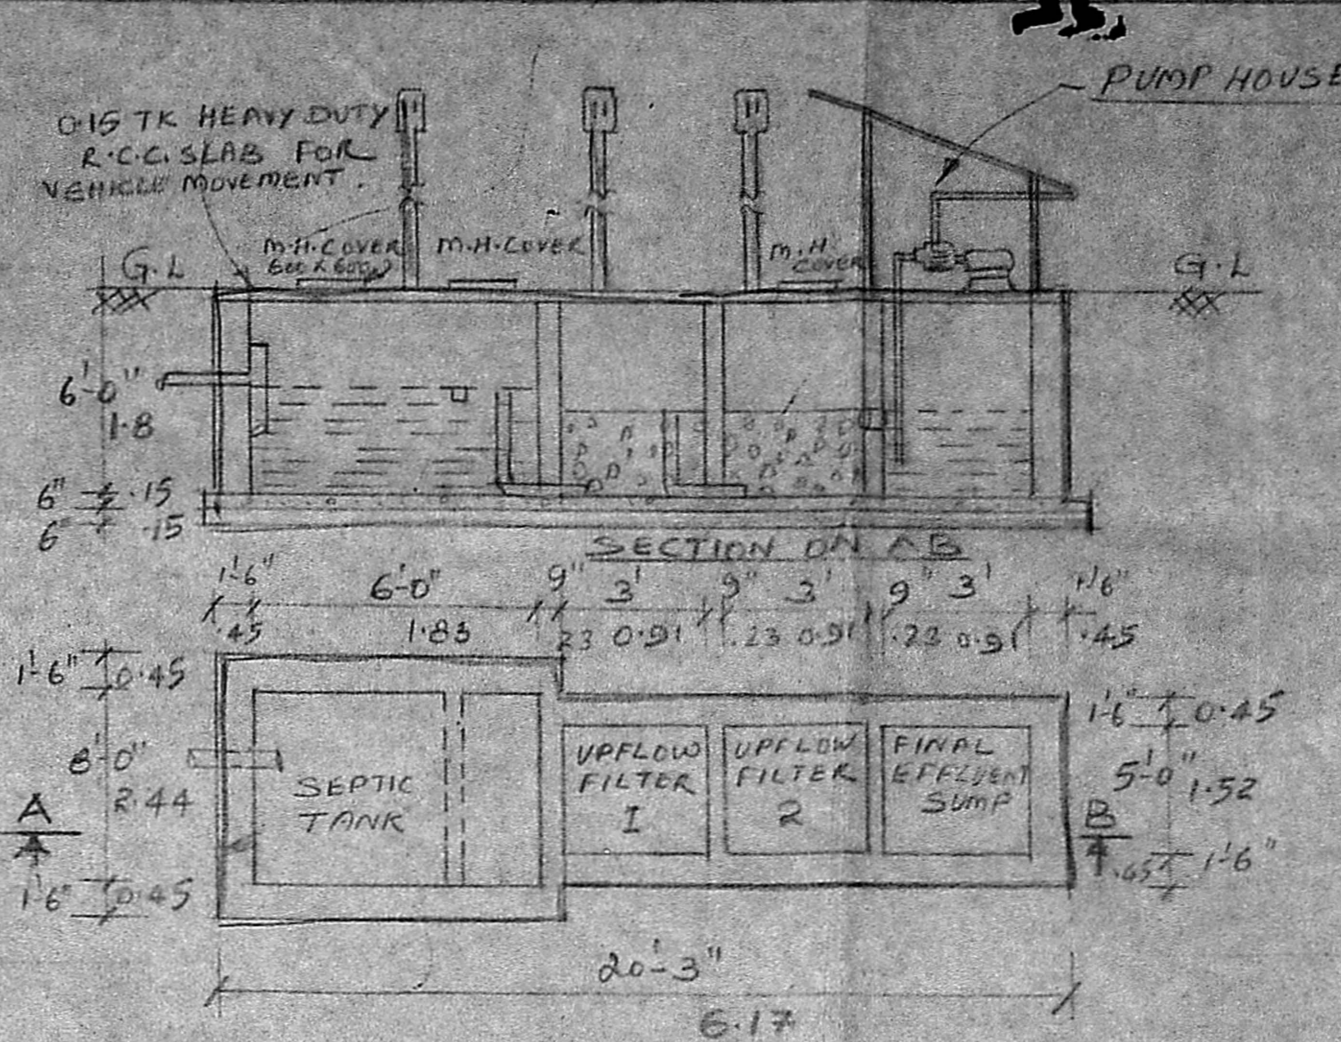 PUMP HOUSE
0.15 TK HEAVY DUTY
R.C.C. SLAB FOR
VEHICLE MOVEMENT.
M.H.COVER
600 X 600
M.H.COVER
M.H
COVER
G.L
G.L
6'-0"
1.8
6" .15
6" .15
SECTION ON AB
1'-6" 6'-0" 9" 3' 9" 3' 9" 3' 1'-6"
.45 1.83 .23 0.91 .23 0.91 .23 0.91 .45
1'-6" 0.45
8'-0"
2.44
1'-6" 0.45
A
SEPTIC
TANK
UPFLOW
FILTER
1
UPFLOW
FILTER
2
FINAL
EFFLUENT
SUMP
1'-6" 0.45
5'-0" 1.52
B
1'-6"
20'-3"
6.17